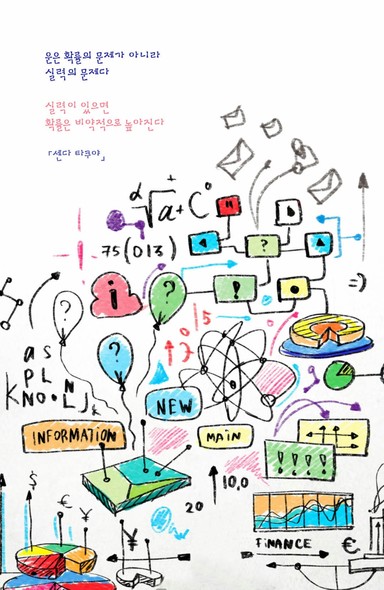 운은 확률의 문제가 아니라
실력의 문제다
실력이 있으면
확률은 비약적으로 높아진다
「센다 타쿠야」
α √a + C°
75(013)
"
?
i
!
=)
?
?
?
0/5
?
as
PL
KNOW
NEW
INFORMATION
MAIN
!!!!
$
€
¥
10,0
20
¥
FINANCE
€